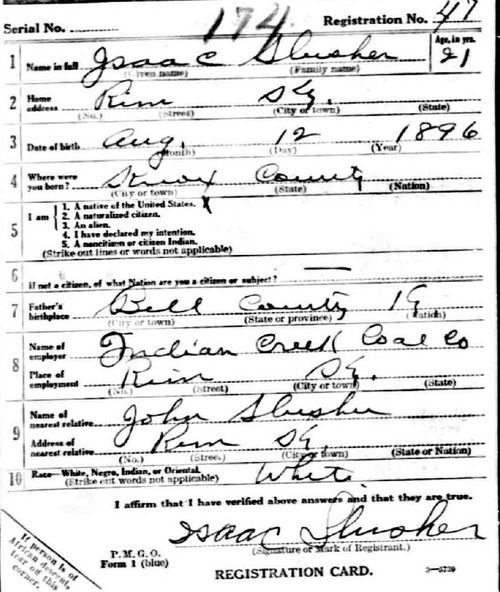 174
Serial No. Registration No. 47
1 Name in full Isaac Slusher Age, in yrs. 21
(Given name) (Family name)
2 Home address Rim Ky.
(No.) (Street) (City or town) (State)
3 Date of birth Aug. 12 1896
(Month) (Day) (Year)
4 Where were you born? Knox County
(City or town) (State) (Nation)
5 I am
1. A native of the United States. X
2. A naturalized citizen.
3. An alien.
4. I have declared my intention.
5. A noncitizen or citizen Indian.
(Strike out lines or words not applicable)
6 If not a citizen, of what Nation are you a citizen or subject? —
7 Father's birthplace Bell County Ky
(City or town) (State or province) (Nation)
8 Name of employer Indian Creek Coal Co
Place of employment Rim Ky.
(No.) (Street) (City or town) (State)
9 Name of nearest relative John Slusher
Address of nearest relative Rim Ky.
(No.) (Street) (City or town) (State or Nation)
10 Race—White, Negro, Indian, or Oriental. White
(Strike out words not applicable)
I affirm that I have verified above answers and that they are true.
Isaac Slusher
(Signature or Mark of Registrant.)
P. M. G. O.
Form 1 (blue)
REGISTRATION CARD. 3—5739
If person is of
African descent,
tear off this
corner.